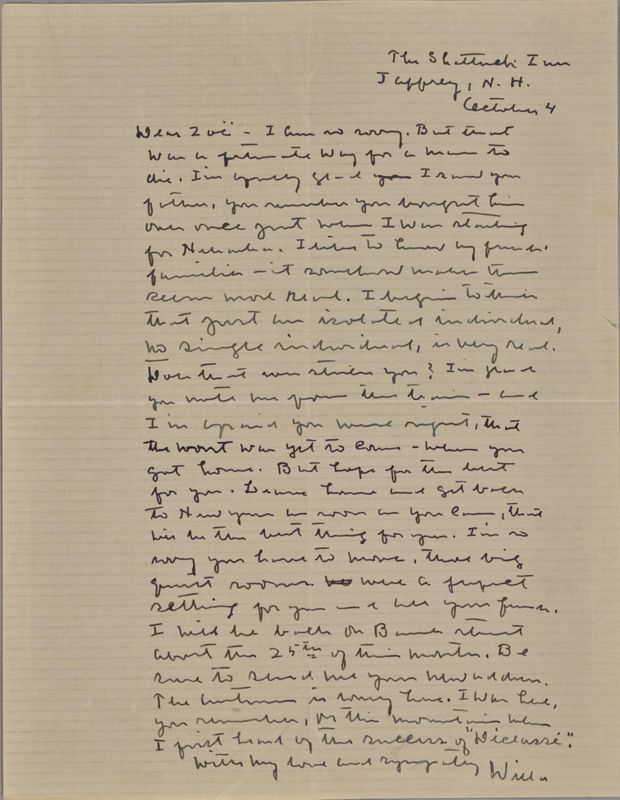 The Shattuck Inn
Jaffrey, N. H.
October 4
Dear Zoë - I am so sorry. But that
was a fortunate way for a man to
die. I'm awfully glad I saw your
father, you remember you brought him
over once just when I was starting
for Nebraska. I like to know my friends'
families - it somehow makes them
seem more real. I begin to think
that just an isolated individual,
no single individual, is very real.
Does that ever strike you? I'm glad
you wrote me from the train - and
I'm afraid you were right, that
the worst was yet to come - when you
got home. But hope for the best
for you. Leave home and get back
to New York as soon as you can, that
will be the best thing for you. I'm so
sorry you have to move, those big
quiet rooms were a perfect
setting for you and all your
I will be back on Bank street
about the 25th of this month. Be
sure to send me your new address.
The autumn is lovely here. I was here,
you remember, on this mountain when
I first heard of the success of "Déclassé".
With my love and sympathy Willa